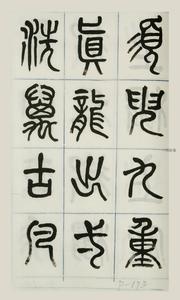 須臾九重
真龍出弌
洗萬古凡